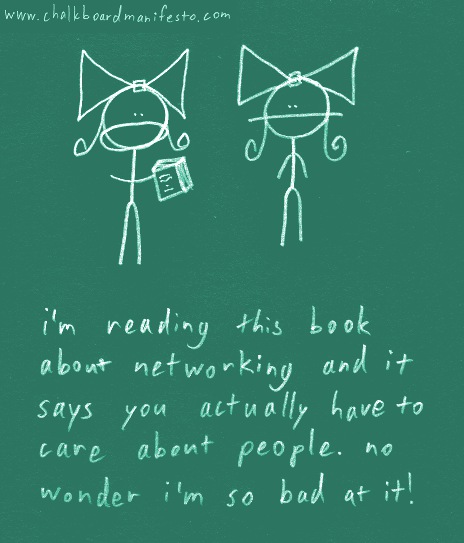 www.chalkboardmanifesto.com
i'm reading this book
about networking and it
says you actually have to
care about people. no
wonder i'm so bad at it!